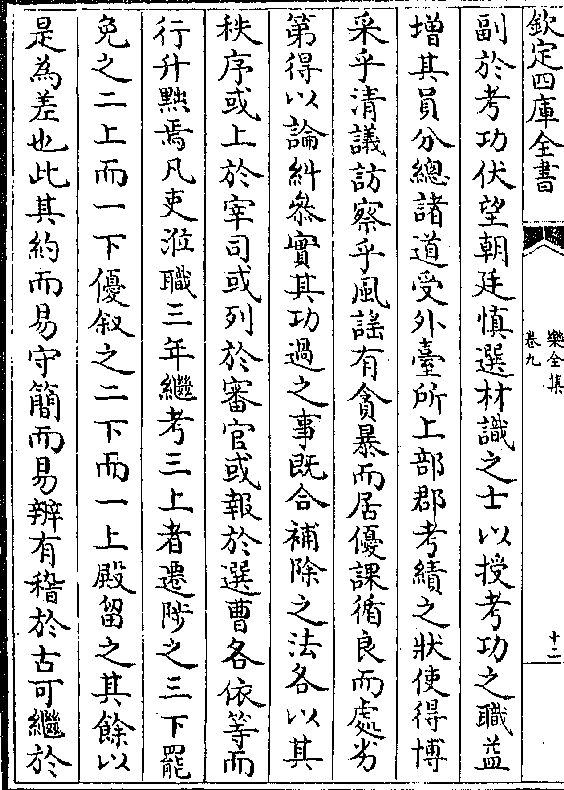 欽定四庫全書
樂全集
卷九
十二
副於考功伏望朝廷慎選材識之士以授考功之職益
增其員分總諸道受外臺所上部郡考績之狀使得博
采乎清議訪察乎風謡有貪暴而居優課循良而處劣
第得以論糾叅實其功過之事既合補除之法各以其
秩序或上於宰司或列於審官或報於選曹各依等而
行升黜焉凡吏涖職三年繼考三上者遷陟之三下罷
免之二上而一下優叙之二下而一上殿留之其餘以
是為差也此其約而易守簡而易辦有稽於古可繼於